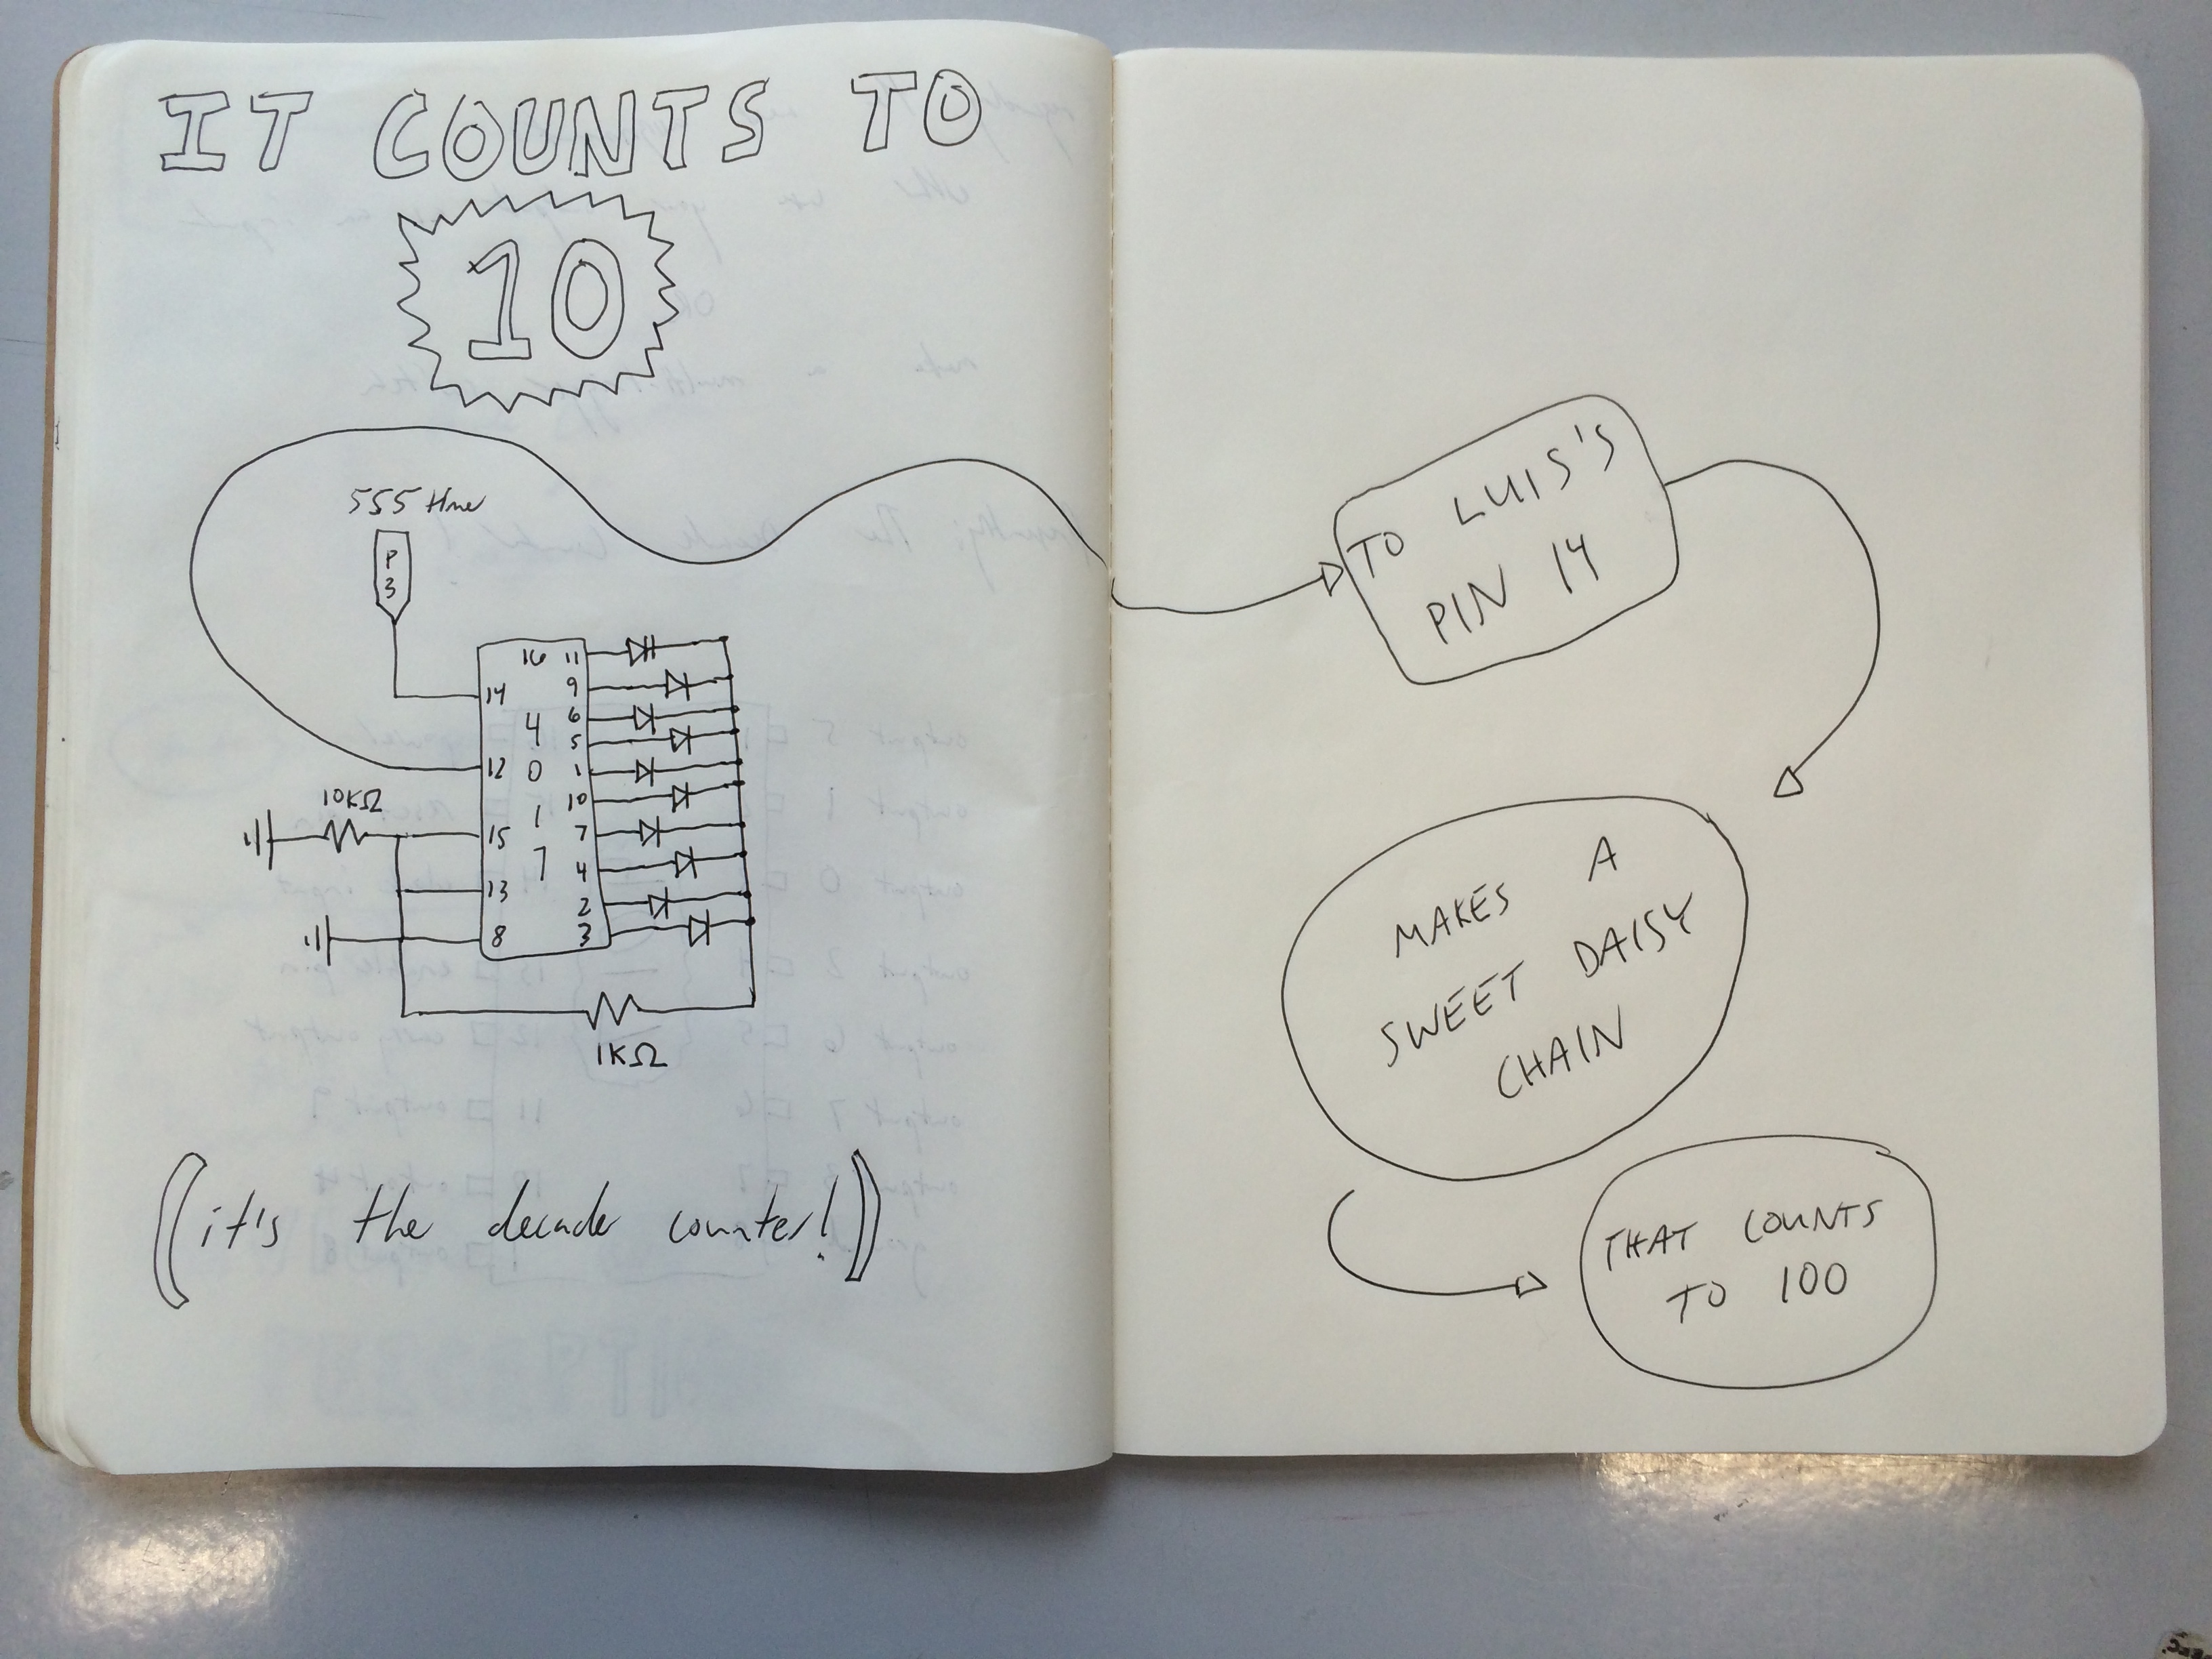 IT COUNTS TO
10
555 timer
P
3
16 11
14 9
4 6
5
12 0 1
10KΩ
10
15 1 7
7 4
13
2
8 3
1KΩ
(it's the decade counter!)
TO LUIS'S
PIN 14
MAKES A
SWEET DAISY
CHAIN
THAT COUNTS
TO 100